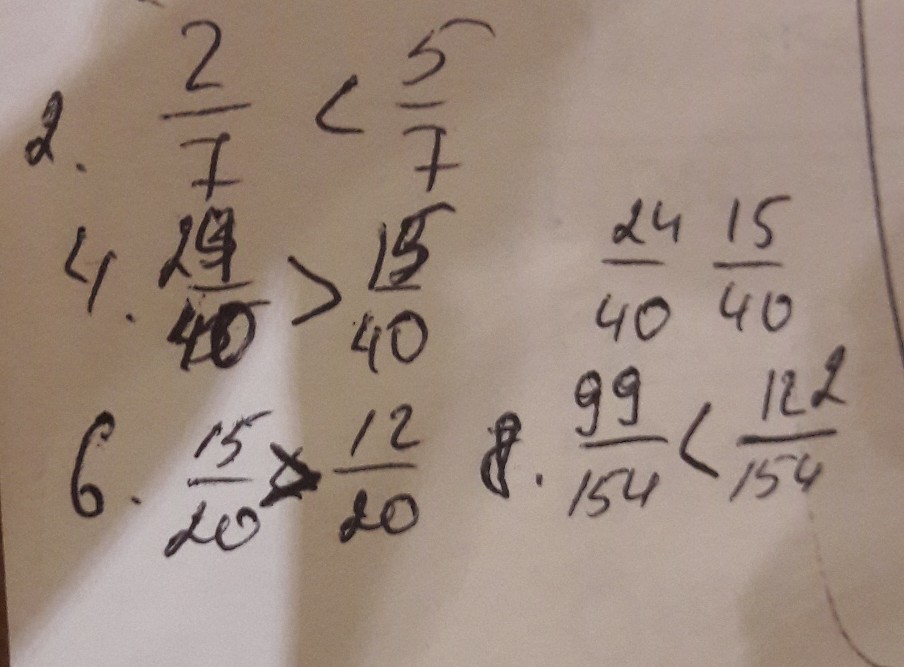 2. 2/7 < 5/7
4. 24/40 > 15/40 24/40 15/40
6. 15/20 > 12/20 8. 99/154 < 122/154